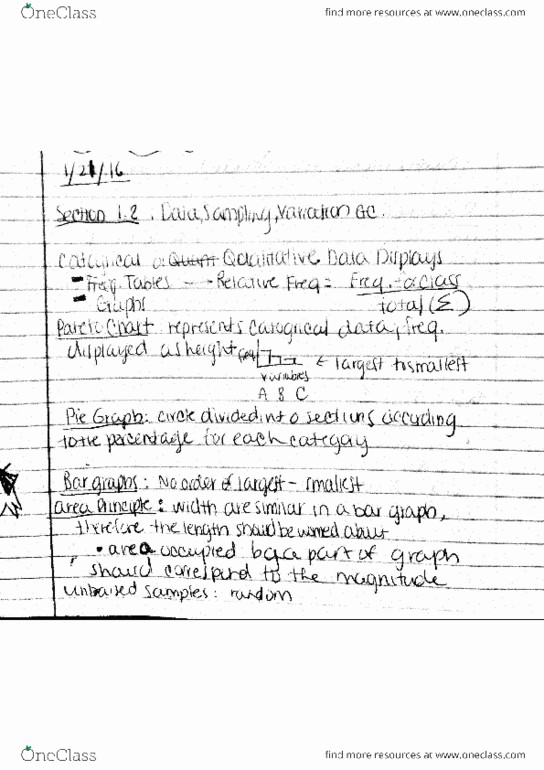 OneClass
find more resources at www.oneclass.com
1/21/16
Section 1.2. Data, Sampling, Variation
Qualitative Data Displays
- Freq. Tables - - Relative Freq = Freq. of class
- Graphs total (Σ)
Pareto Chart represents data, freq.
displayed as height ← largest to smallest
variables
A B C
Pie Graph: circle divided into sections according
to the percentage for each category
Bar graphs: No order of largest - smallest
area Principle: width are similar in a bar graph,
therefore the length should be worried about
• area occupied by a part of graph
should correspond to the magnitude
unbaised samples: random
OneClass
find more resources at www.oneclass.com